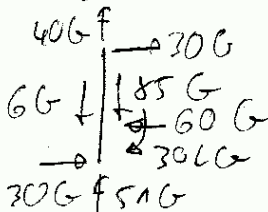 40G
30G
6G 85 G
60 G
30LG
30G 51G